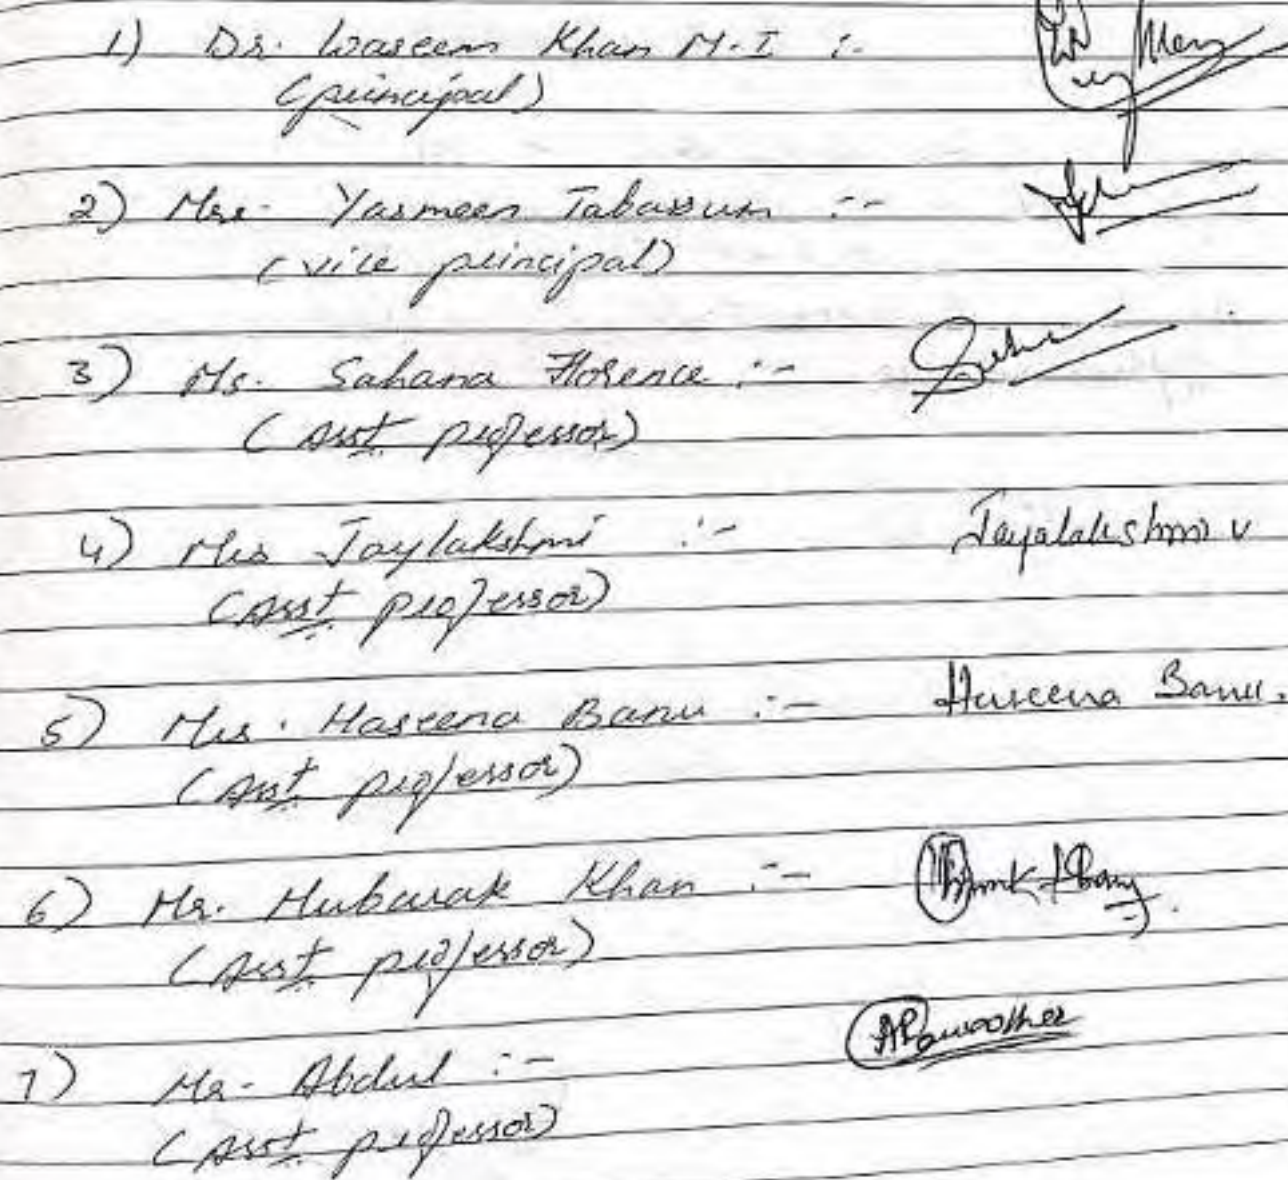 1) Dr. Waseem Khan M.I :-
(principal)
2) Mrs. Yasmeen Tabassum :-
(vice principal)
3) Ms. Sahana Florence :-
(Asst. professor)
4) Mrs Jaylakshmi :- Jayalakshmi V
(Asst. professor)
5) Mrs. Haseena Banu :- Haseena Banu.
(Asst. professor)
6) Mr. Mubarak Khan :-
(Asst. professor)
7) Mr. Abdul :-
(Asst. professor)